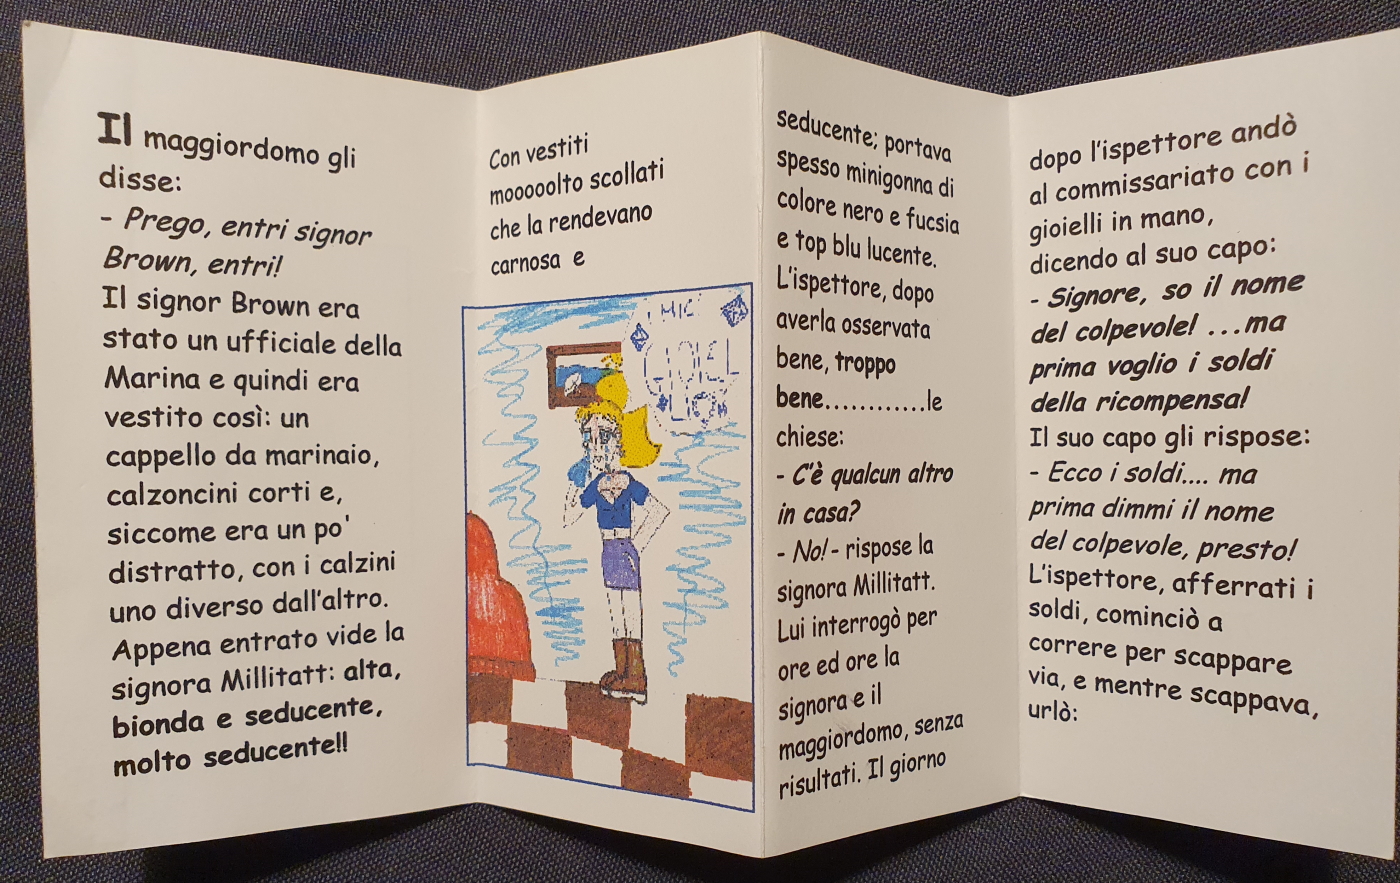 Il maggiordomo gli
disse:
- Prego, entri signor
Brown, entri!
Il signor Brown era
stato un ufficiale della
Marina e quindi era
vestito così: un
cappello da marinaio,
calzoncini corti e,
siccome era un po'
distratto, con i calzini
uno diverso dall'altro.
Appena entrato vide la
signora Millitatt: alta,
bionda e seducente,
molto seducente!!
Con vestiti
mooooolto scollati
che la rendevano
carnosa e
I MIEI
GIOIEL
LI
seducente; portava
spesso minigonna di
colore nero e fucsia
e top blu lucente.
L'ispettore, dopo
averla osservata
bene, troppo
bene............le
chiese:
- C'è qualcun altro
in casa?
- No!- rispose la
signora Millitatt.
Lui interrogò per
ore ed ore la
signora e il
maggiordomo, senza
risultati. Il giorno
dopo l'ispettore andò
al commissariato con i
gioielli in mano,
dicendo al suo capo:
- Signore, so il nome
del colpevole! ...ma
prima voglio i soldi
della ricompensa!
Il suo capo gli rispose:
- Ecco i soldi.... ma
prima dimmi il nome
del colpevole, presto!
L'ispettore, afferrati i
soldi, cominciò a
correre per scappare
via, e mentre scappava,
urlò: